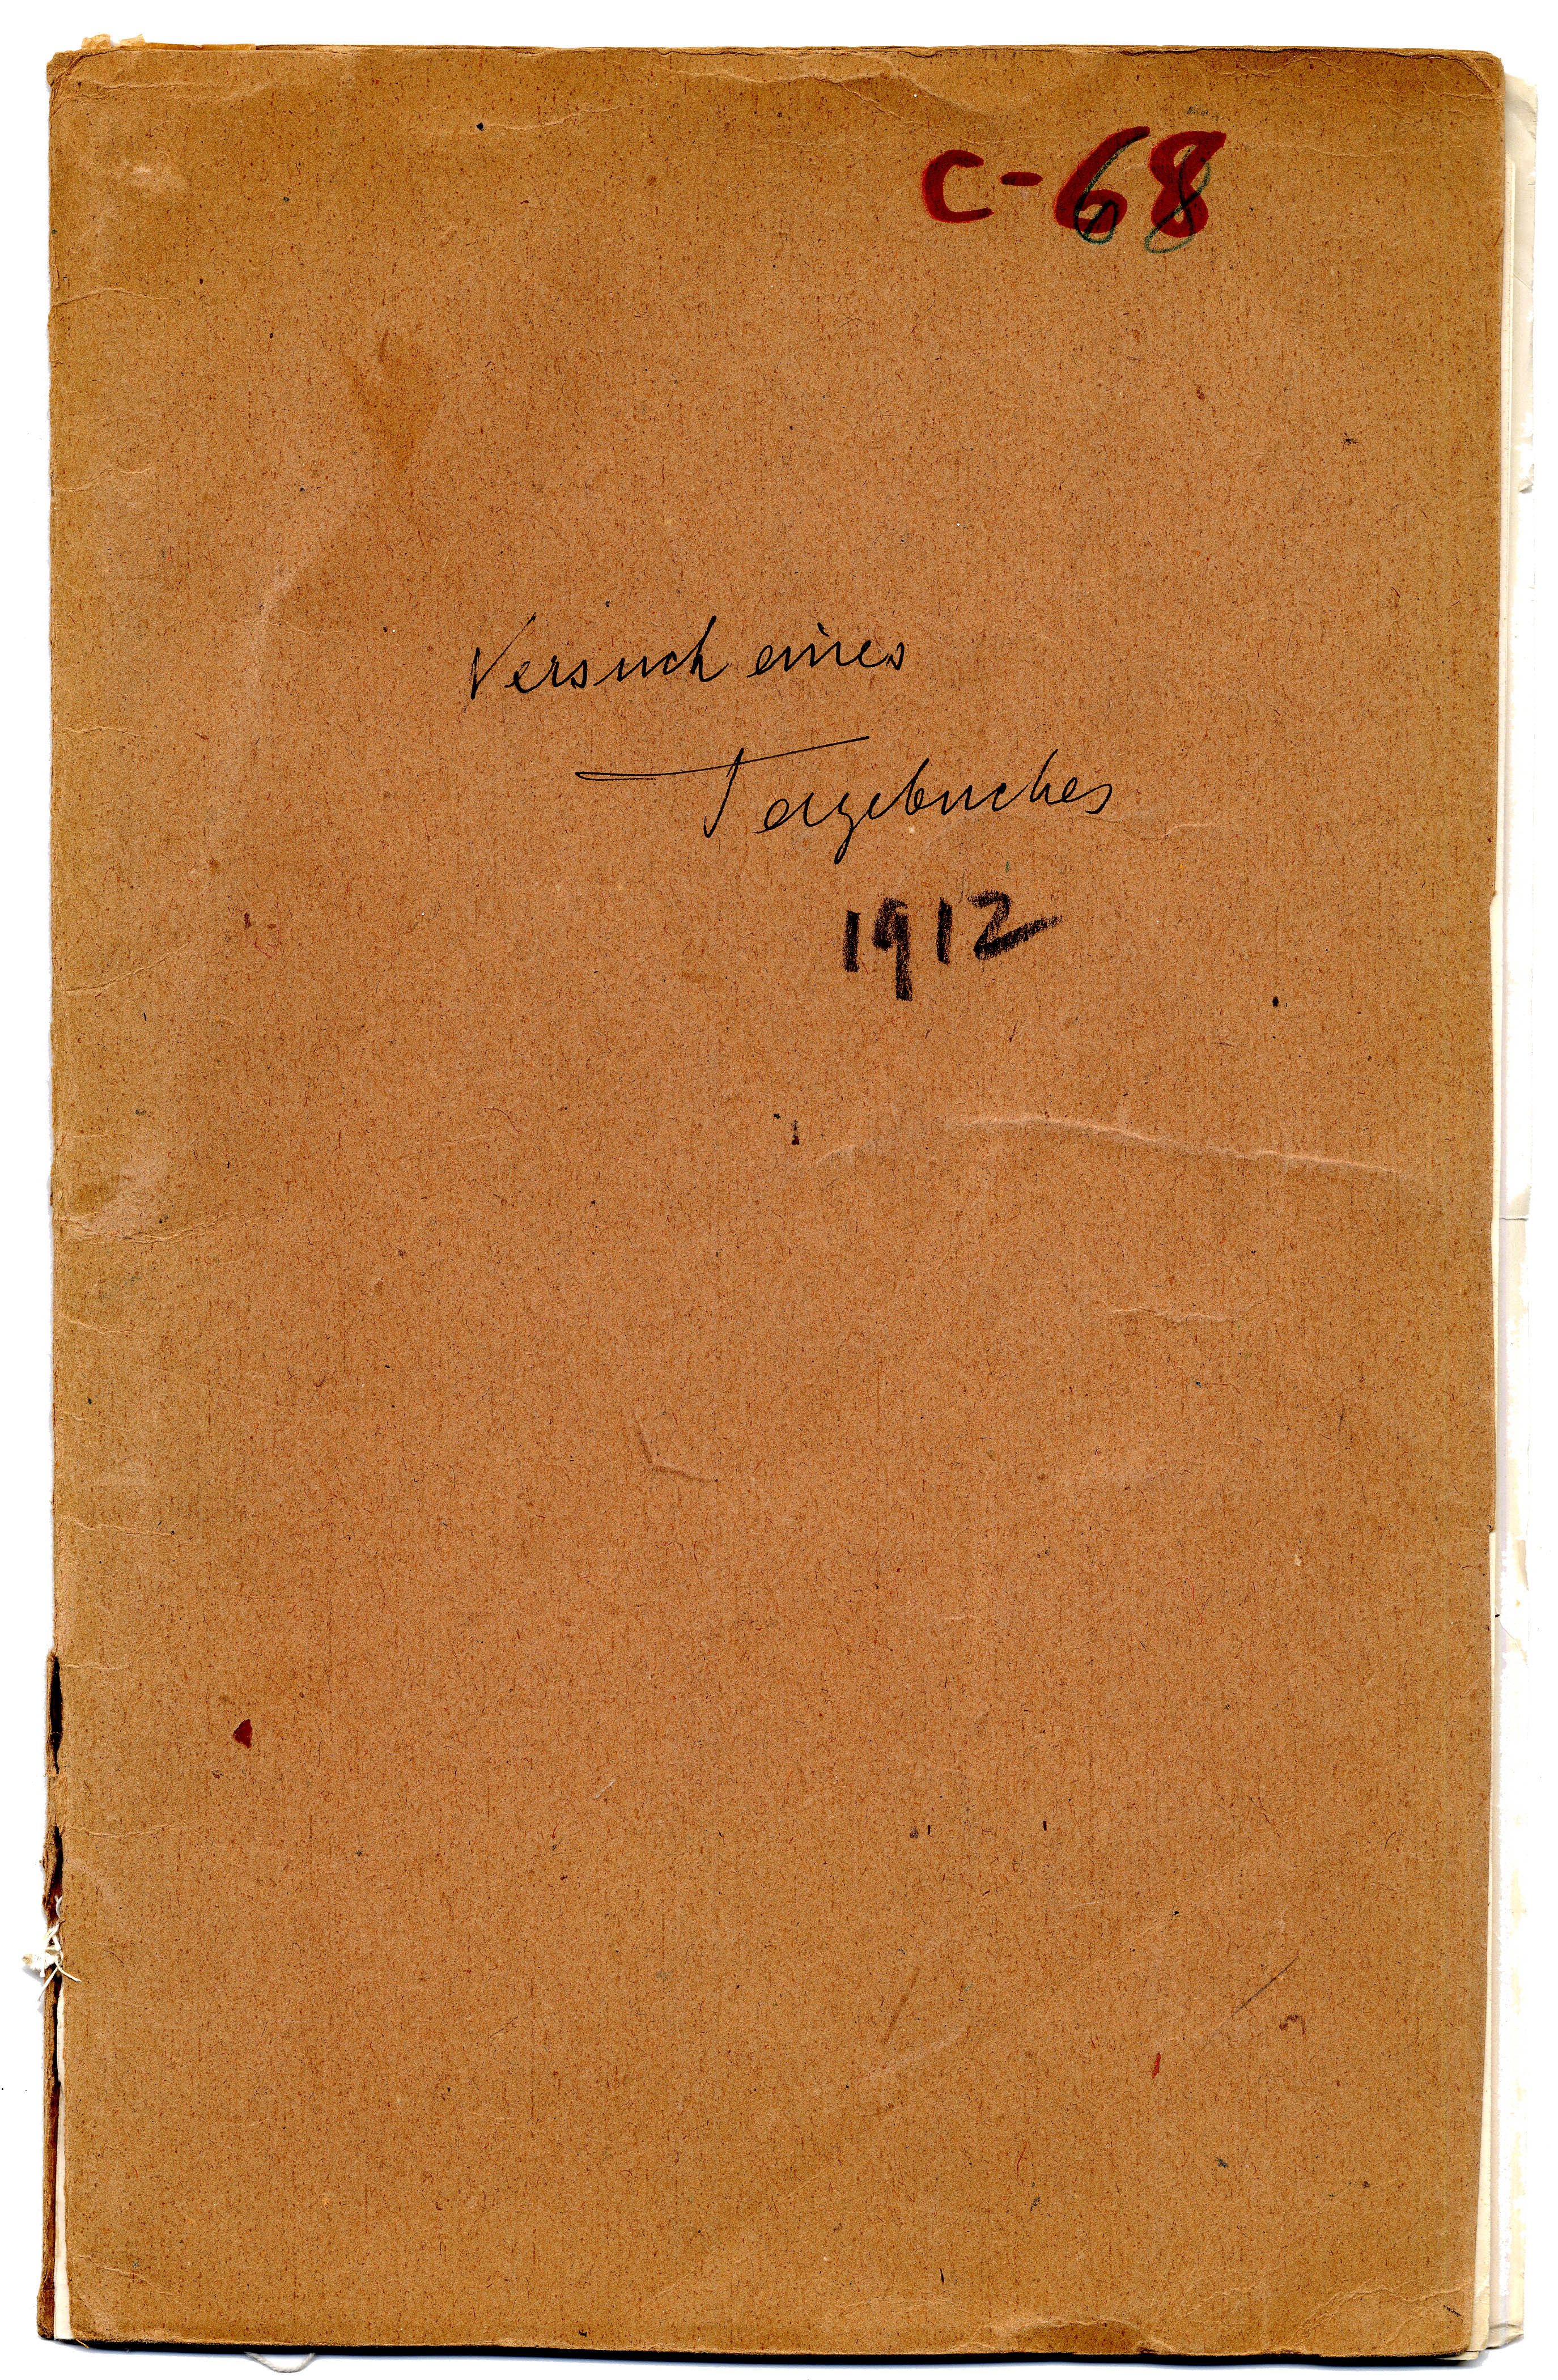 C-68
Versuch eines
Tagebuches
1912